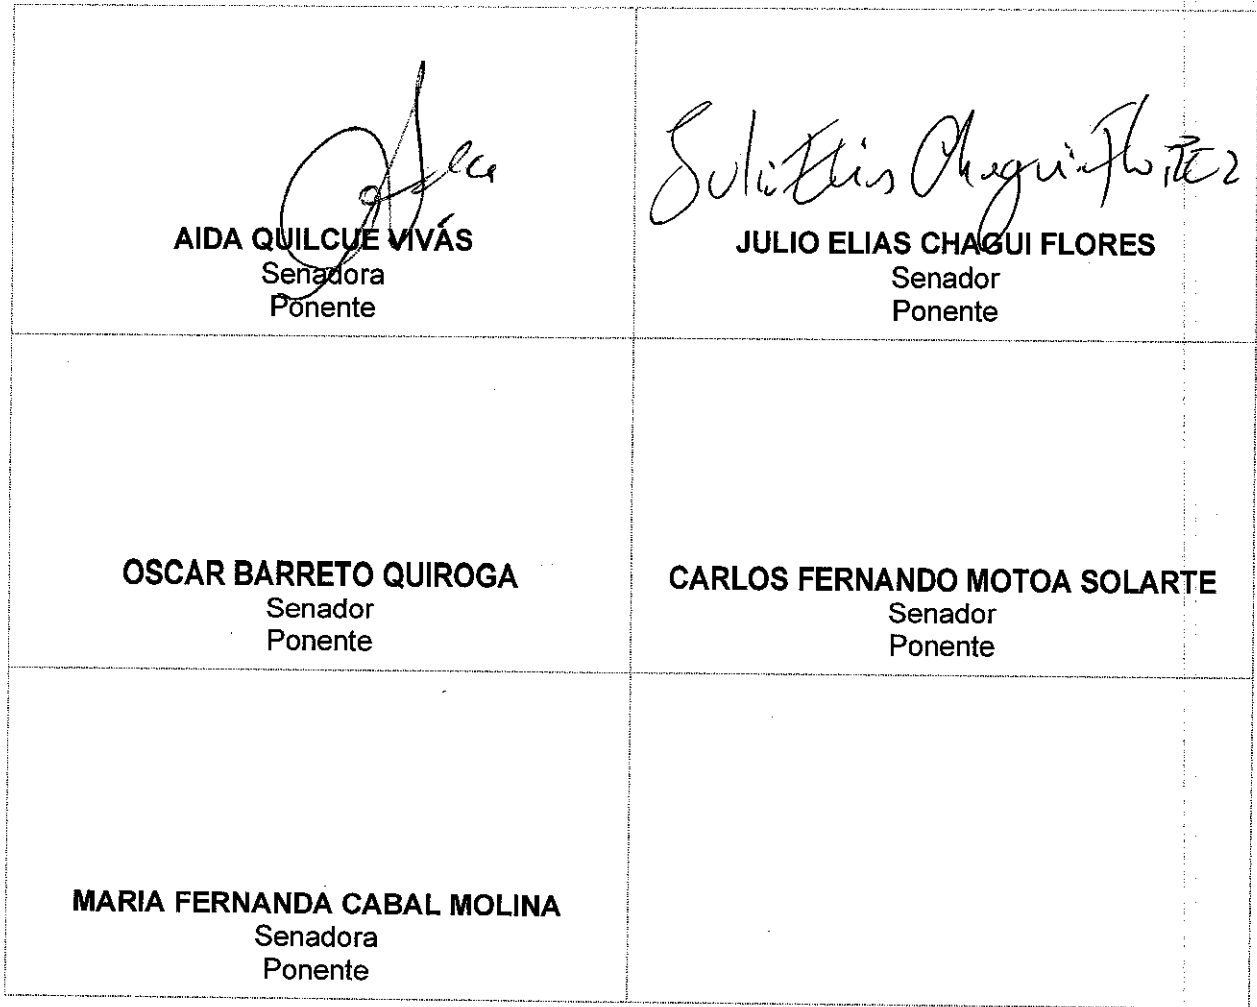 Julio Elias Chagui Florez
AIDA QUILCUE VIVÁS
Senadora
Ponente
JULIO ELIAS CHAGUI FLORES
Senador
Ponente
OSCAR BARRETO QUIROGA
Senador
Ponente
CARLOS FERNANDO MOTOA SOLARTE
Senador
Ponente
MARIA FERNANDA CABAL MOLINA
Senadora
Ponente